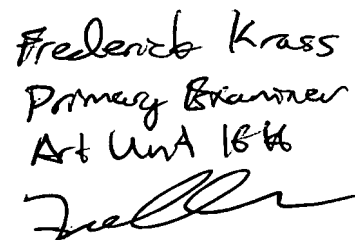 Frederick Krass
Primary Examiner
Art Unit